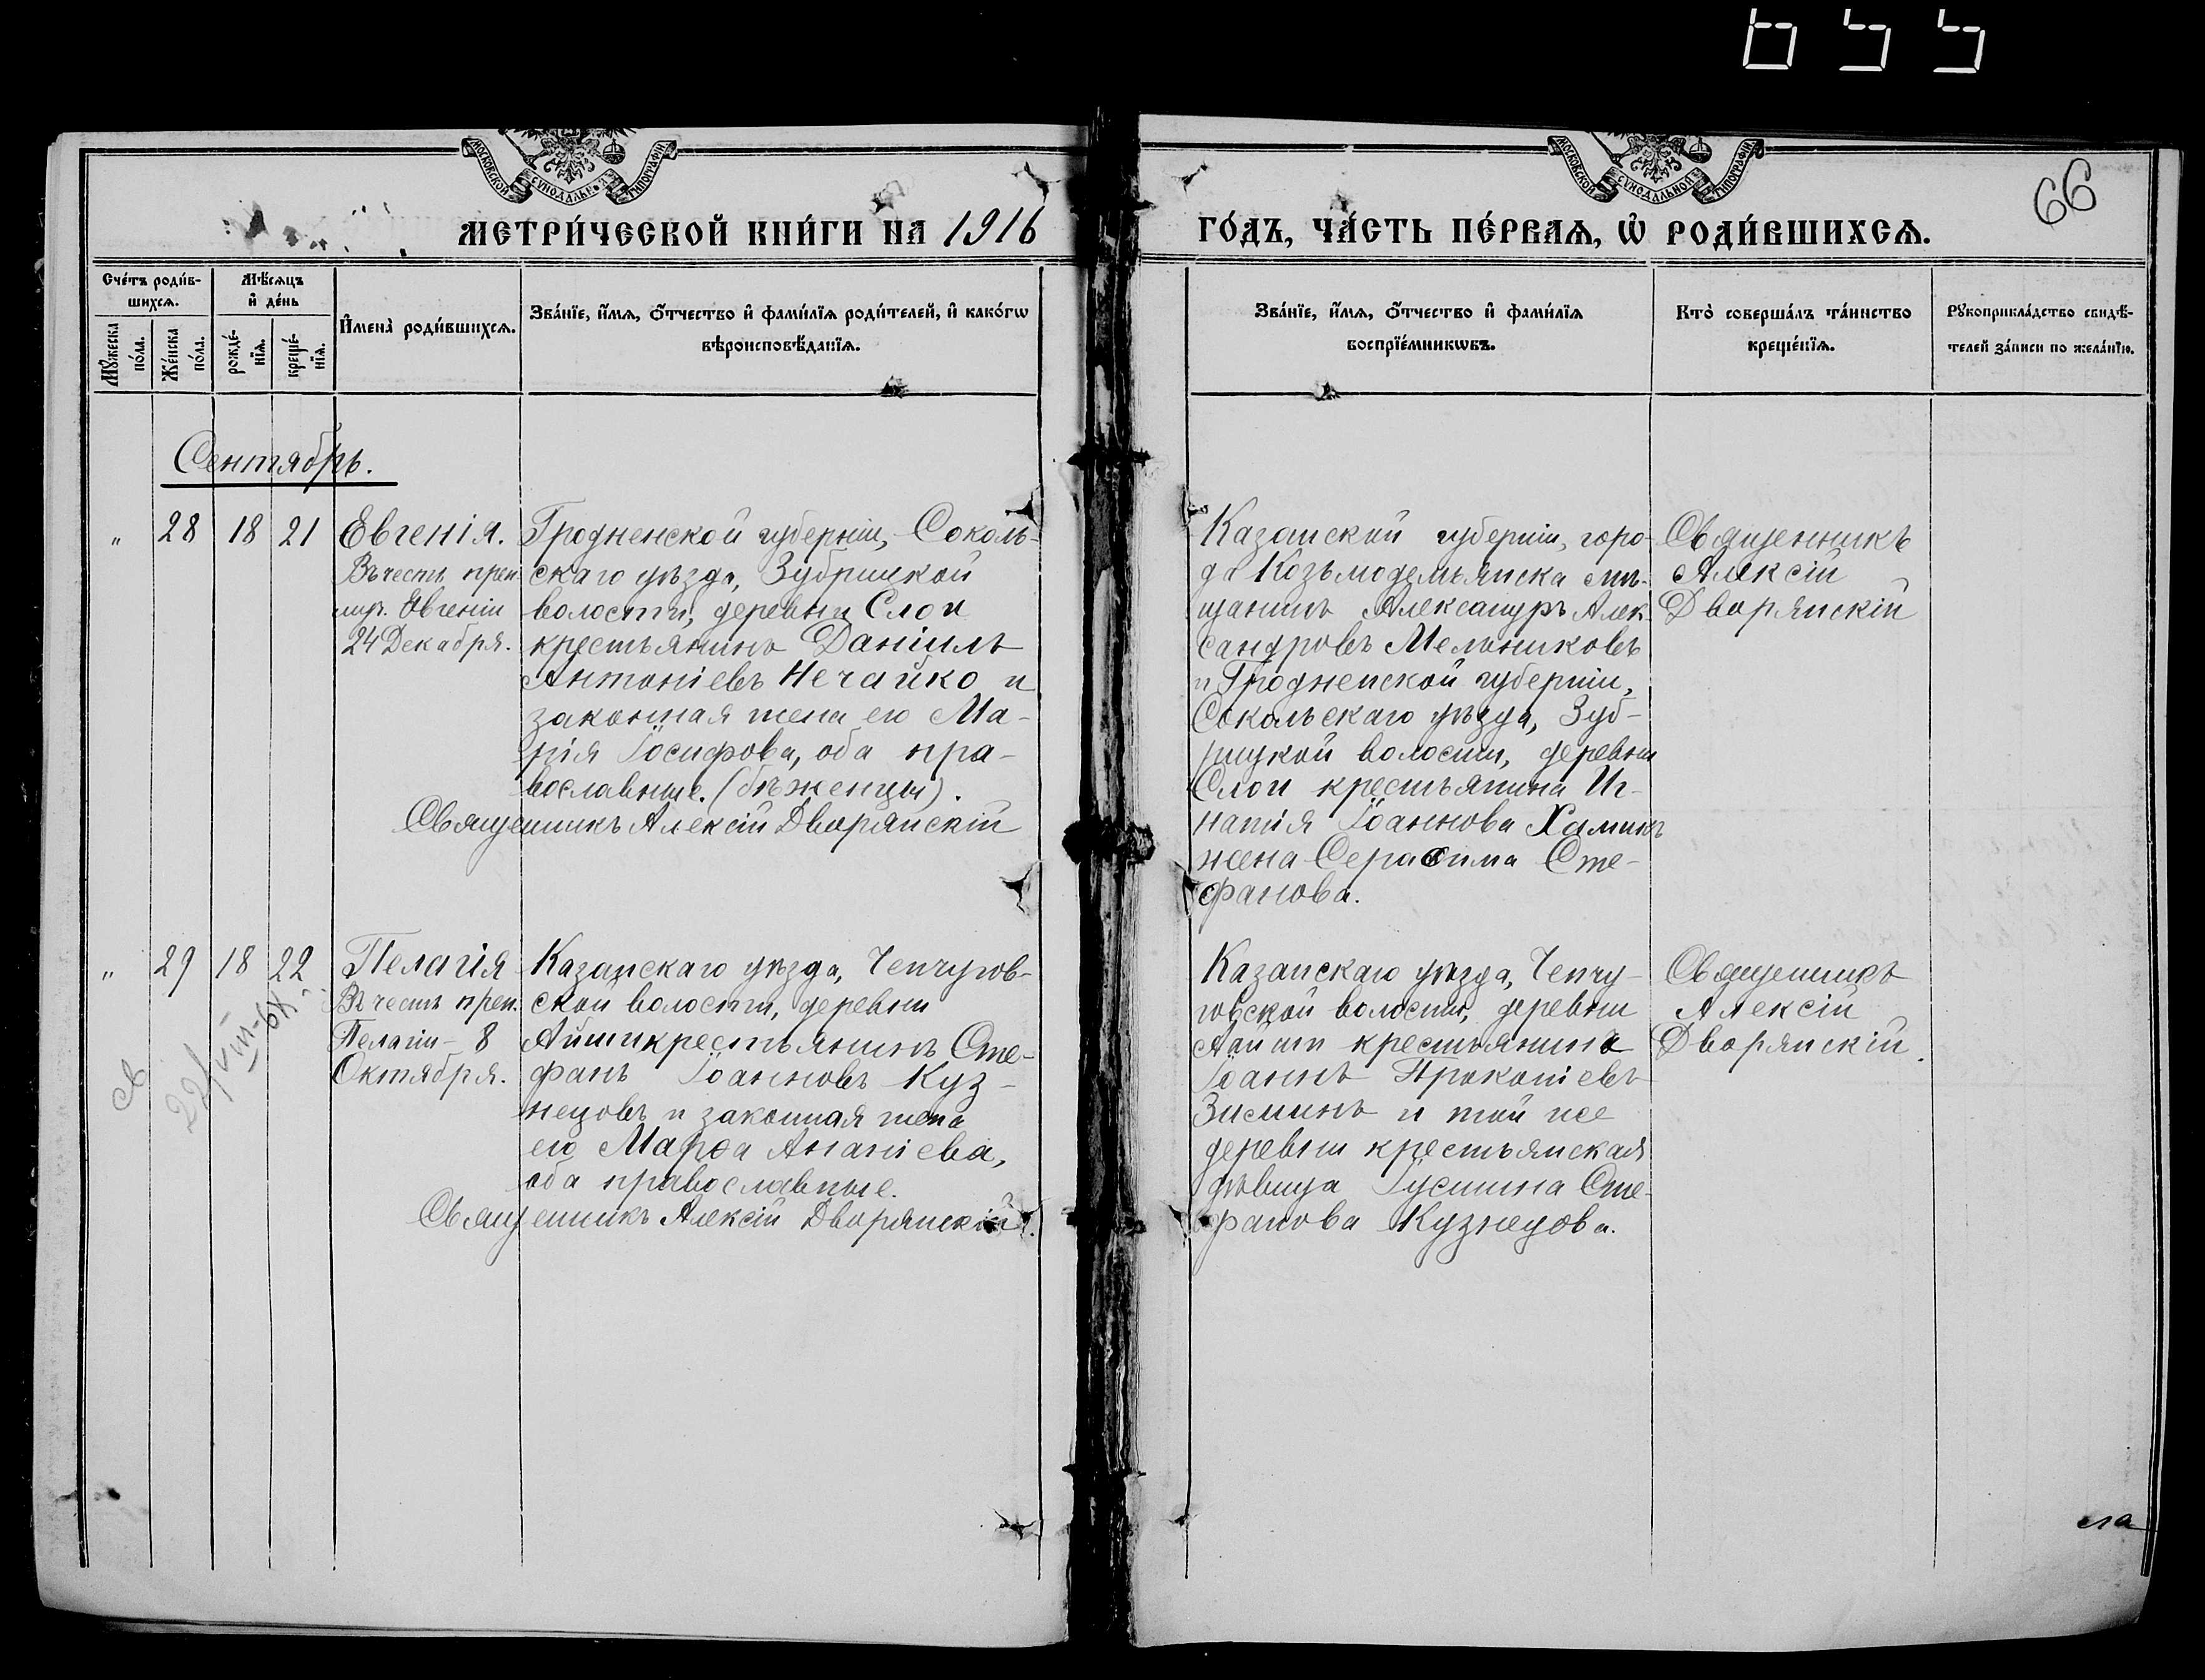 655
66
МОСКОВСКОЙ СѴНОДАЛЬНОЙ ТИПОГРАФІИ
МОСКОВСКОЙ СѴНОДАЛЬНОЙ ТИПОГРАФІИ
МЕТРИ́ЧЕСКОЙ КНИ́ГИ НА 1916
ГО́ДЪ, ЧА́СТЬ ПЕ́РВАѦ, Ѡ҆ РОДИ́ВШИХСѦ.
Сче́тъ роди́в-
шихсѧ.
Мꙋ́жеска
по́ла.
Же́нска
по́ла.
Мѣ́сѧцъ
и҆ де́нь
рожде́-
нїѧ.
креще́-
нїѧ.
И҆мена̀ роди́вшихсѧ.
Зва́нїе, и҆́мѧ, ѻ҆́тчество и҆ фами́лїѧ роди́телей, и҆ како́гѡ
вѣроисповѣ́данїѧ.
Зва́нїе, и҆́мѧ, ѻ҆́тчество и҆ фами́лїѧ
воспрїе́мникѡвъ.
Кто̀ соверша́лъ та́инство
креще́нїѧ.
Рꙋкоприкла́дство свидѣ́-
телей за́писи по жела́нїю.
Сентябрь.
„ 28 18 21
Евгенія.
Въ честь преп.
муч. Евгеніи
24 Декабря.
Гродненской губерніи, Соколь-
скаго уѣзда, Зубрицкой
волости, деревни Слои
крестьянинъ Даніилъ
Антоніевъ Нечайко и
законная жена его Ма-
рія Іосифова, оба пра-
вославные. (бѣженцы).
Священникъ Алексій Дворянскій
Казанской губерніи, горо-
да Козьмодемьянска мѣ-
щанинъ Александръ Алек-
сандровъ Мельниковъ
и Гродненской губерніи,
Сокольскаго уѣзда, Зуб-
рицкой волости, деревни
Слои крестьянина Иг-
натія Іоаннова Хамикъ
жена Серафима Сте-
фанова.
Священникъ
Алексій
Дворянскій
„ 29 18 22
Пелагія
Въ честь преп.
Пелагіи – 8
Октября.
Казанскаго уѣзда, Чепчугов-
ской волости, деревни
Айши крестьянинъ Сте-
фанъ Іоанновъ Куз-
нецовъ и законная жена
его Марѳа Ананіева,
оба православные.
Священникъ Алексій Дворянскій.
Казанскаго уѣзда, Чепчу-
говской волости, деревни
Айши крестьянина
Іоаннъ Прокопіевъ
Зиминъ и той же
деревни крестьянская
дѣвица Іустина Сте-
фанова Кузнецова.
Священникъ
Алексій
Дворянскій.
св
22/VIII-61.
ла